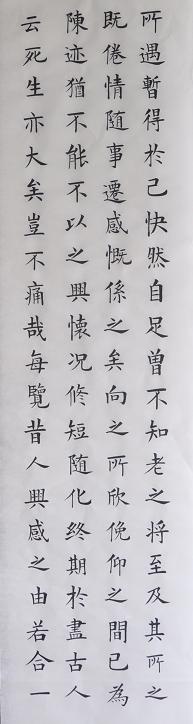 所遇暫得於己快然自足曾不知老之將至及其所之
既倦情隨事遷感慨係之矣向之所欣俛仰之間已為
陳迹猶不能不以之興懷况脩短隨化終期於盡古人
云死生亦大矣豈不痛哉每覽昔人興感之由若合一